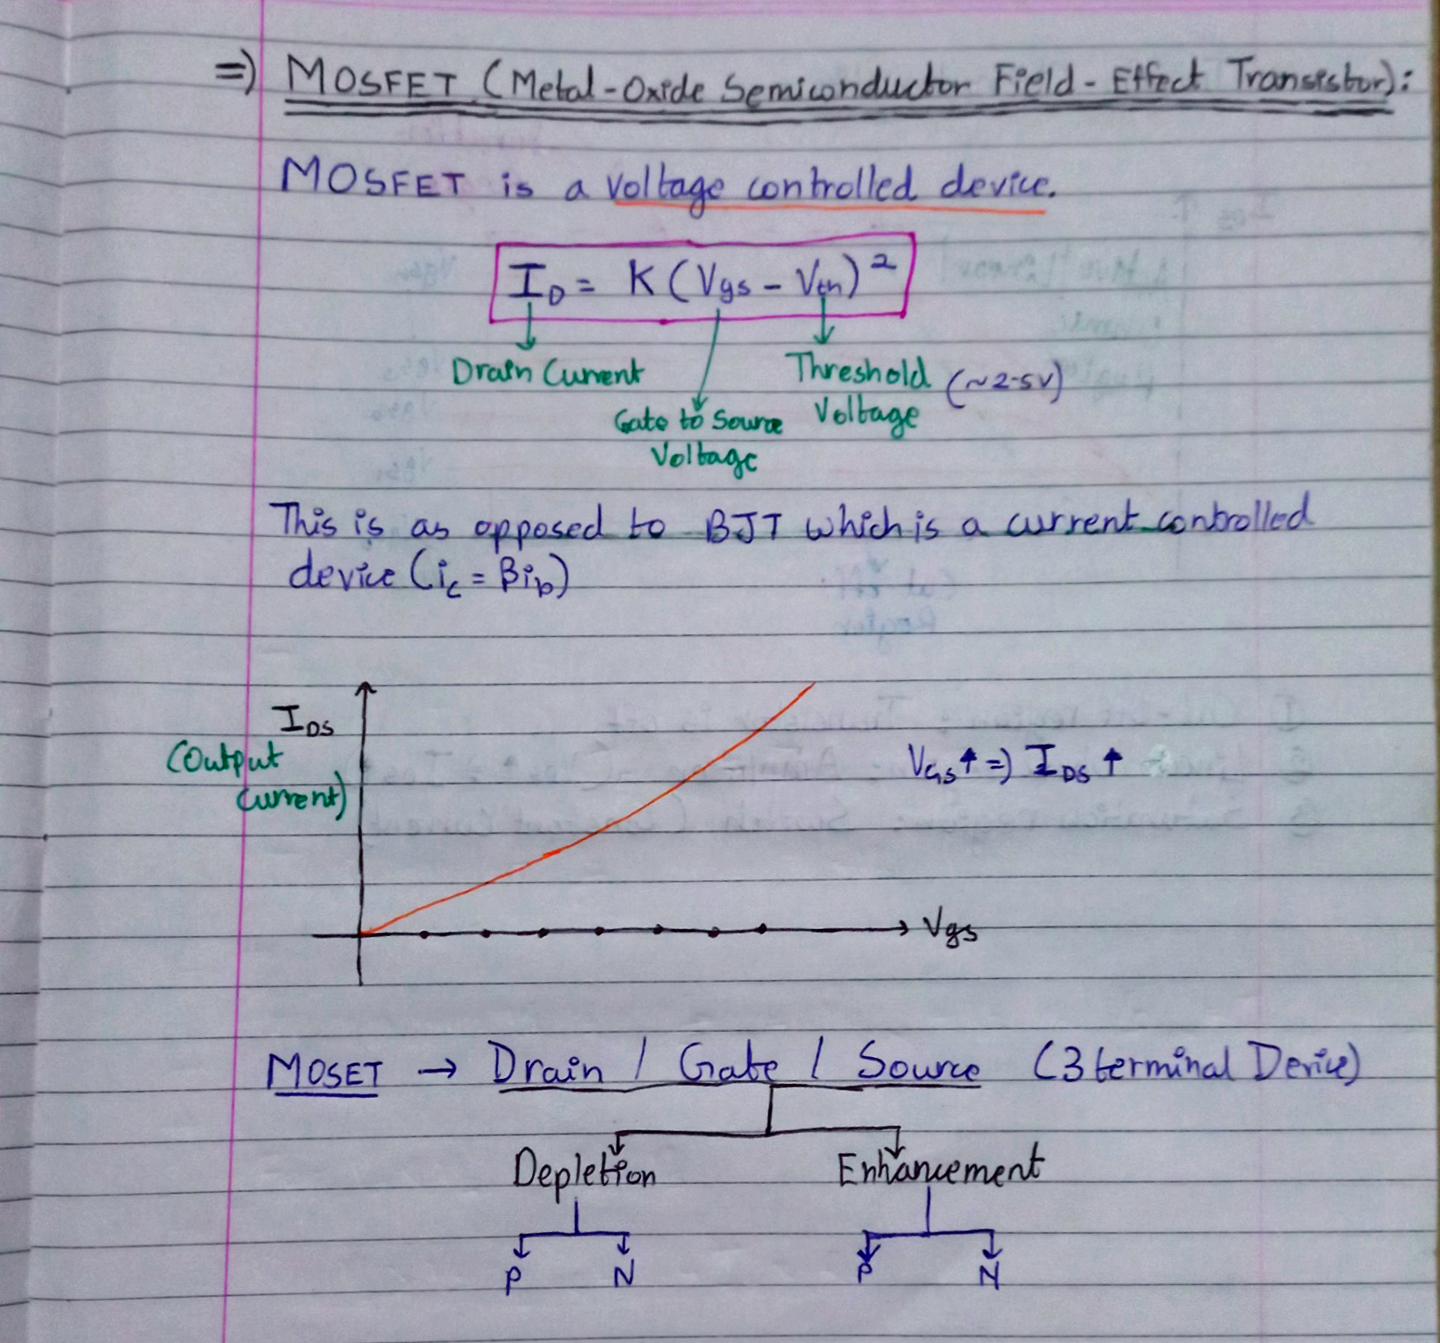 =) MOSFET (Metal-Oxide Semiconductor Field-Effect Transistor):
MOSFET is a voltage controlled device.
I_D = K(Vgs - Vth)²
Drain Current
Threshold Voltage (~2-5V)
Gate to Source Voltage
This is as opposed to BJT which is a current controlled
device (i_c = βi_b)
I_DS
(Output
Current)
V_GS↑ =) I_DS ↑
Vgs
MOSET → Drain / Gate / Source (3 terminal Device)
Depletion Enhancement
P N P N